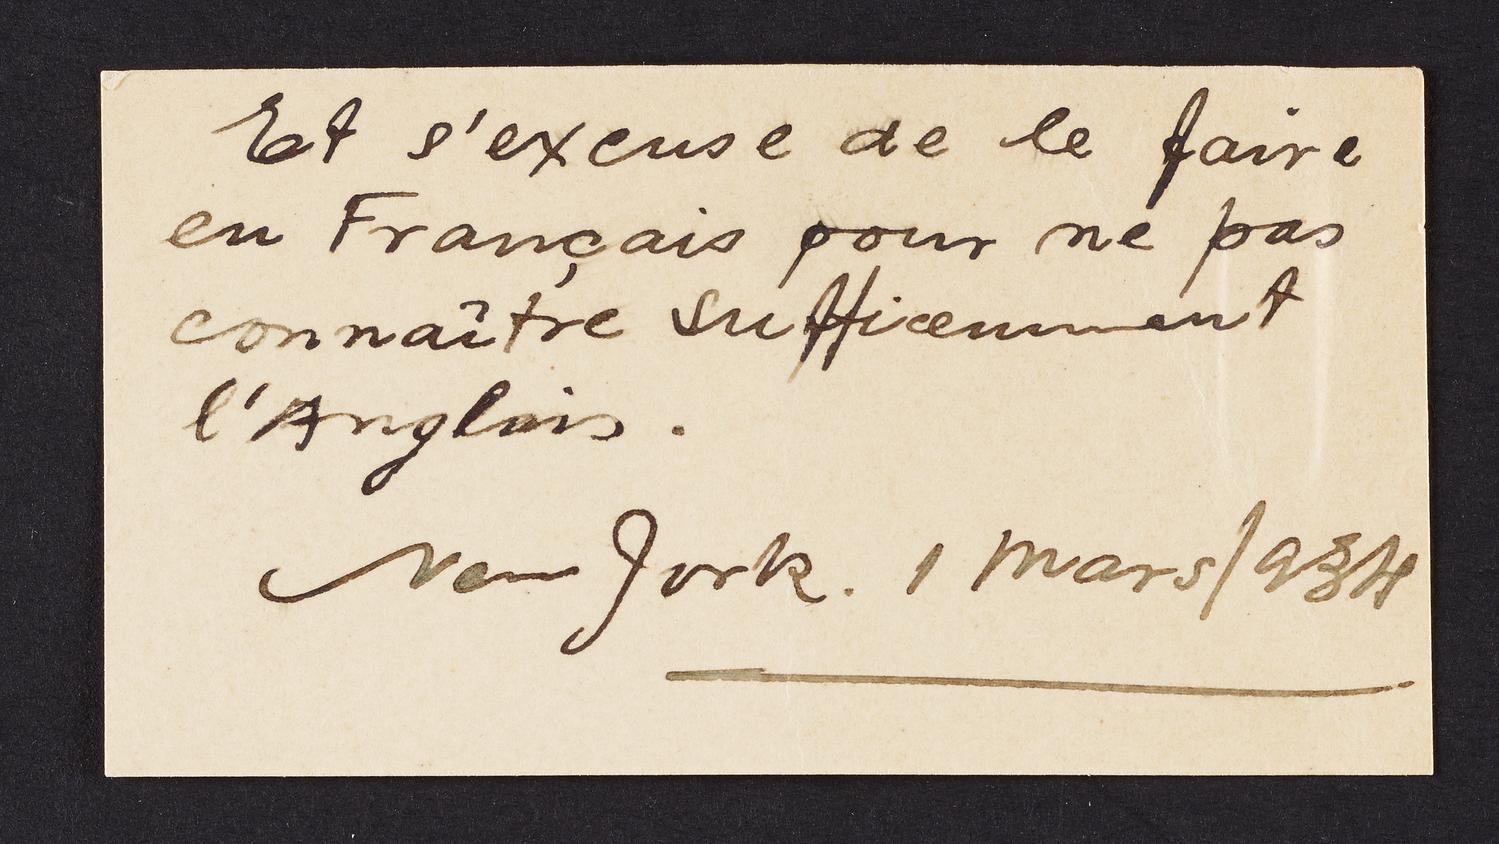 Et s'excuse de le faire
en Français pour ne pas
connaître sufficemment
l'Anglais.
New York. 1 Mars/934